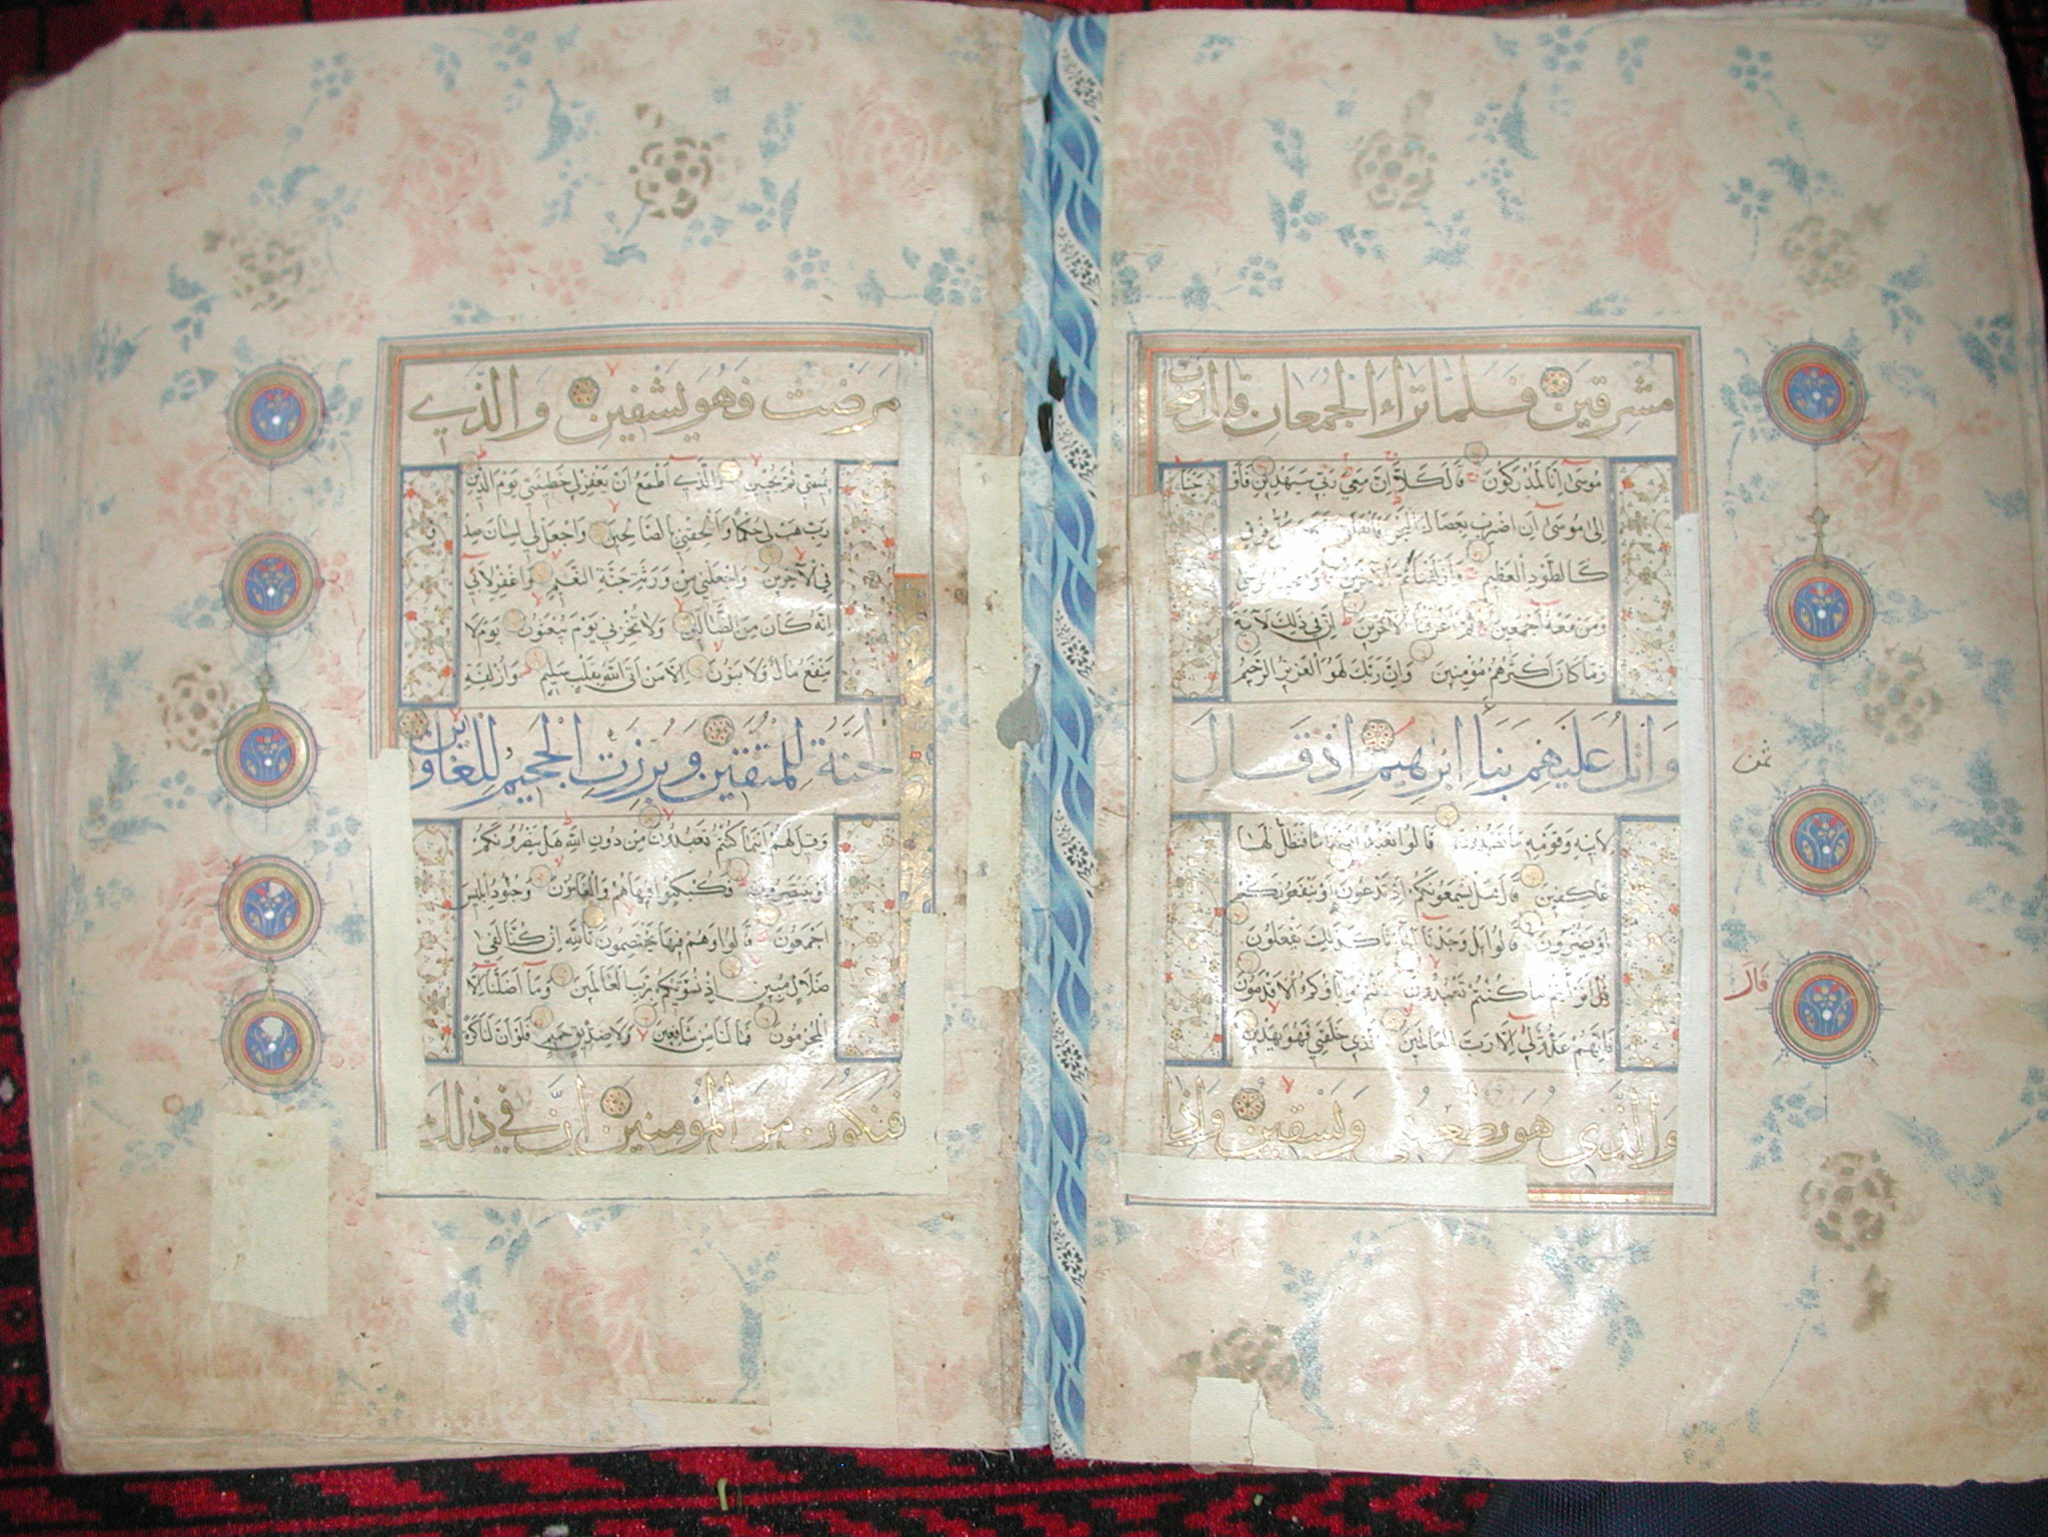 مشرقين فلما تراء الجمعان قال اصحاب
موسى انا لمدركون قال كلا ان معي ربي سيهدين فاوحينا
الى موسى ان اضرب بعصاك البحر فانفلق فكان كل فرق
كالطود العظيم وازلفنا ثم الآخرين وانجينا موسى
ومن معه اجمعين ثم اغرقنا الآخرين ان في ذلك لآية
وما كان اكثرهم مؤمنين وان ربك لهو العزيز الرحيم
واتل عليهم نبأ ابرهيم اذ قال
ثمن
لابيه وقومه ما تعبدون قالوا نعبد اصناما فنظل لها
عاكفين قال هل يسمعونكم اذ تدعون او ينفعونكم
او يضرون قالوا بل وجدنا آباءنا كذلك يفعلون
قال
افرأيتم ما كنتم تعبدون انتم وآباؤكم الاقدمون
فانهم عدو لي الا رب العالمين الذي خلقني فهو يهدين
والذي هو يطعمني ويسقين واذا
مرضت فهو يشفين والذي
يميتني ثم يحيين والذي اطمع ان يغفر لي خطيئتي يوم الدين
رب هب لي حكما والحقني بالصالحين واجعل لي لسان صدق
في الآخرين واجعلني من ورثة جنة النعيم واغفر لابي
انه كان من الضالين ولا تخزني يوم يبعثون يوم لا
ينفع مال ولا بنون الا من اتى الله بقلب سليم وازلفت
الجنة للمتقين وبرزت الجحيم للغاوين
وقيل لهم اينما كنتم تعبدون من دون الله هل ينصرونكم
او ينتصرون فكبكبوا فيها هم والغاوون وجنود ابليس
اجمعون قالوا وهم فيها يختصمون تالله ان كنا لفي
ضلال مبين اذ نسويكم برب العالمين وما اضلنا الا
المجرمون فما لنا من شافعين ولا صديق حميم فلو ان لنا كرة
فنكون من المؤمنين ان في ذلك